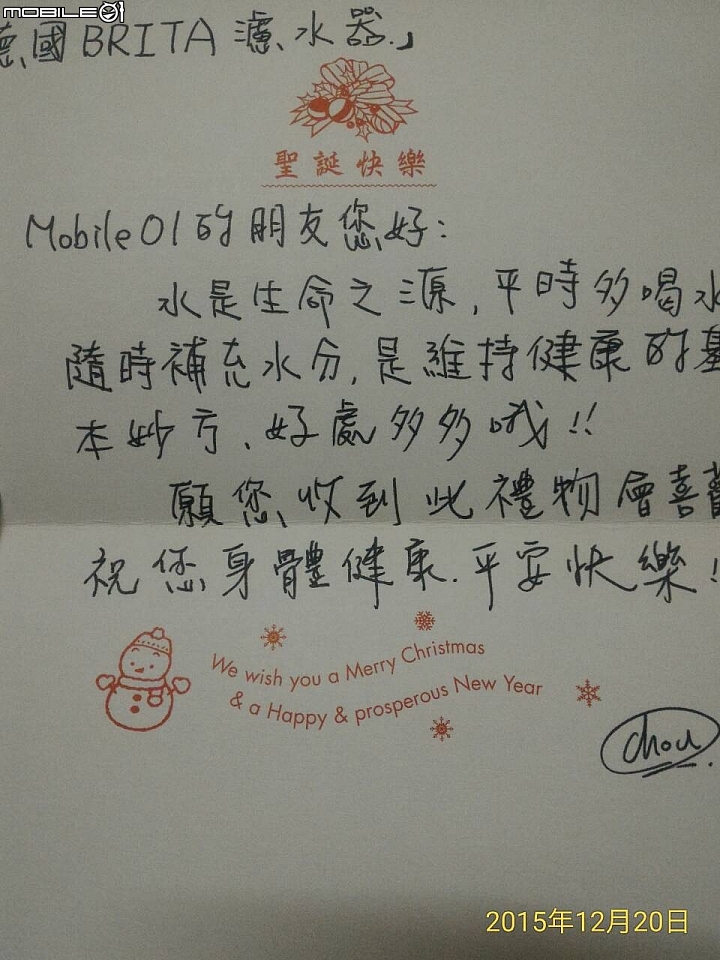 MOBILE01
德國BRITA濾水器」
聖誕快樂
Mobile01的朋友您好:
水是生命之源,平時多喝水
隨時補充水分,是維持健康的基
本妙方、好處多多哦!!
願您收到此禮物會喜歡
祝您身體健康.平安快樂!
We wish you a Merry Christmas
& a Happy & prosperous New Year
chou
2015年12月20日